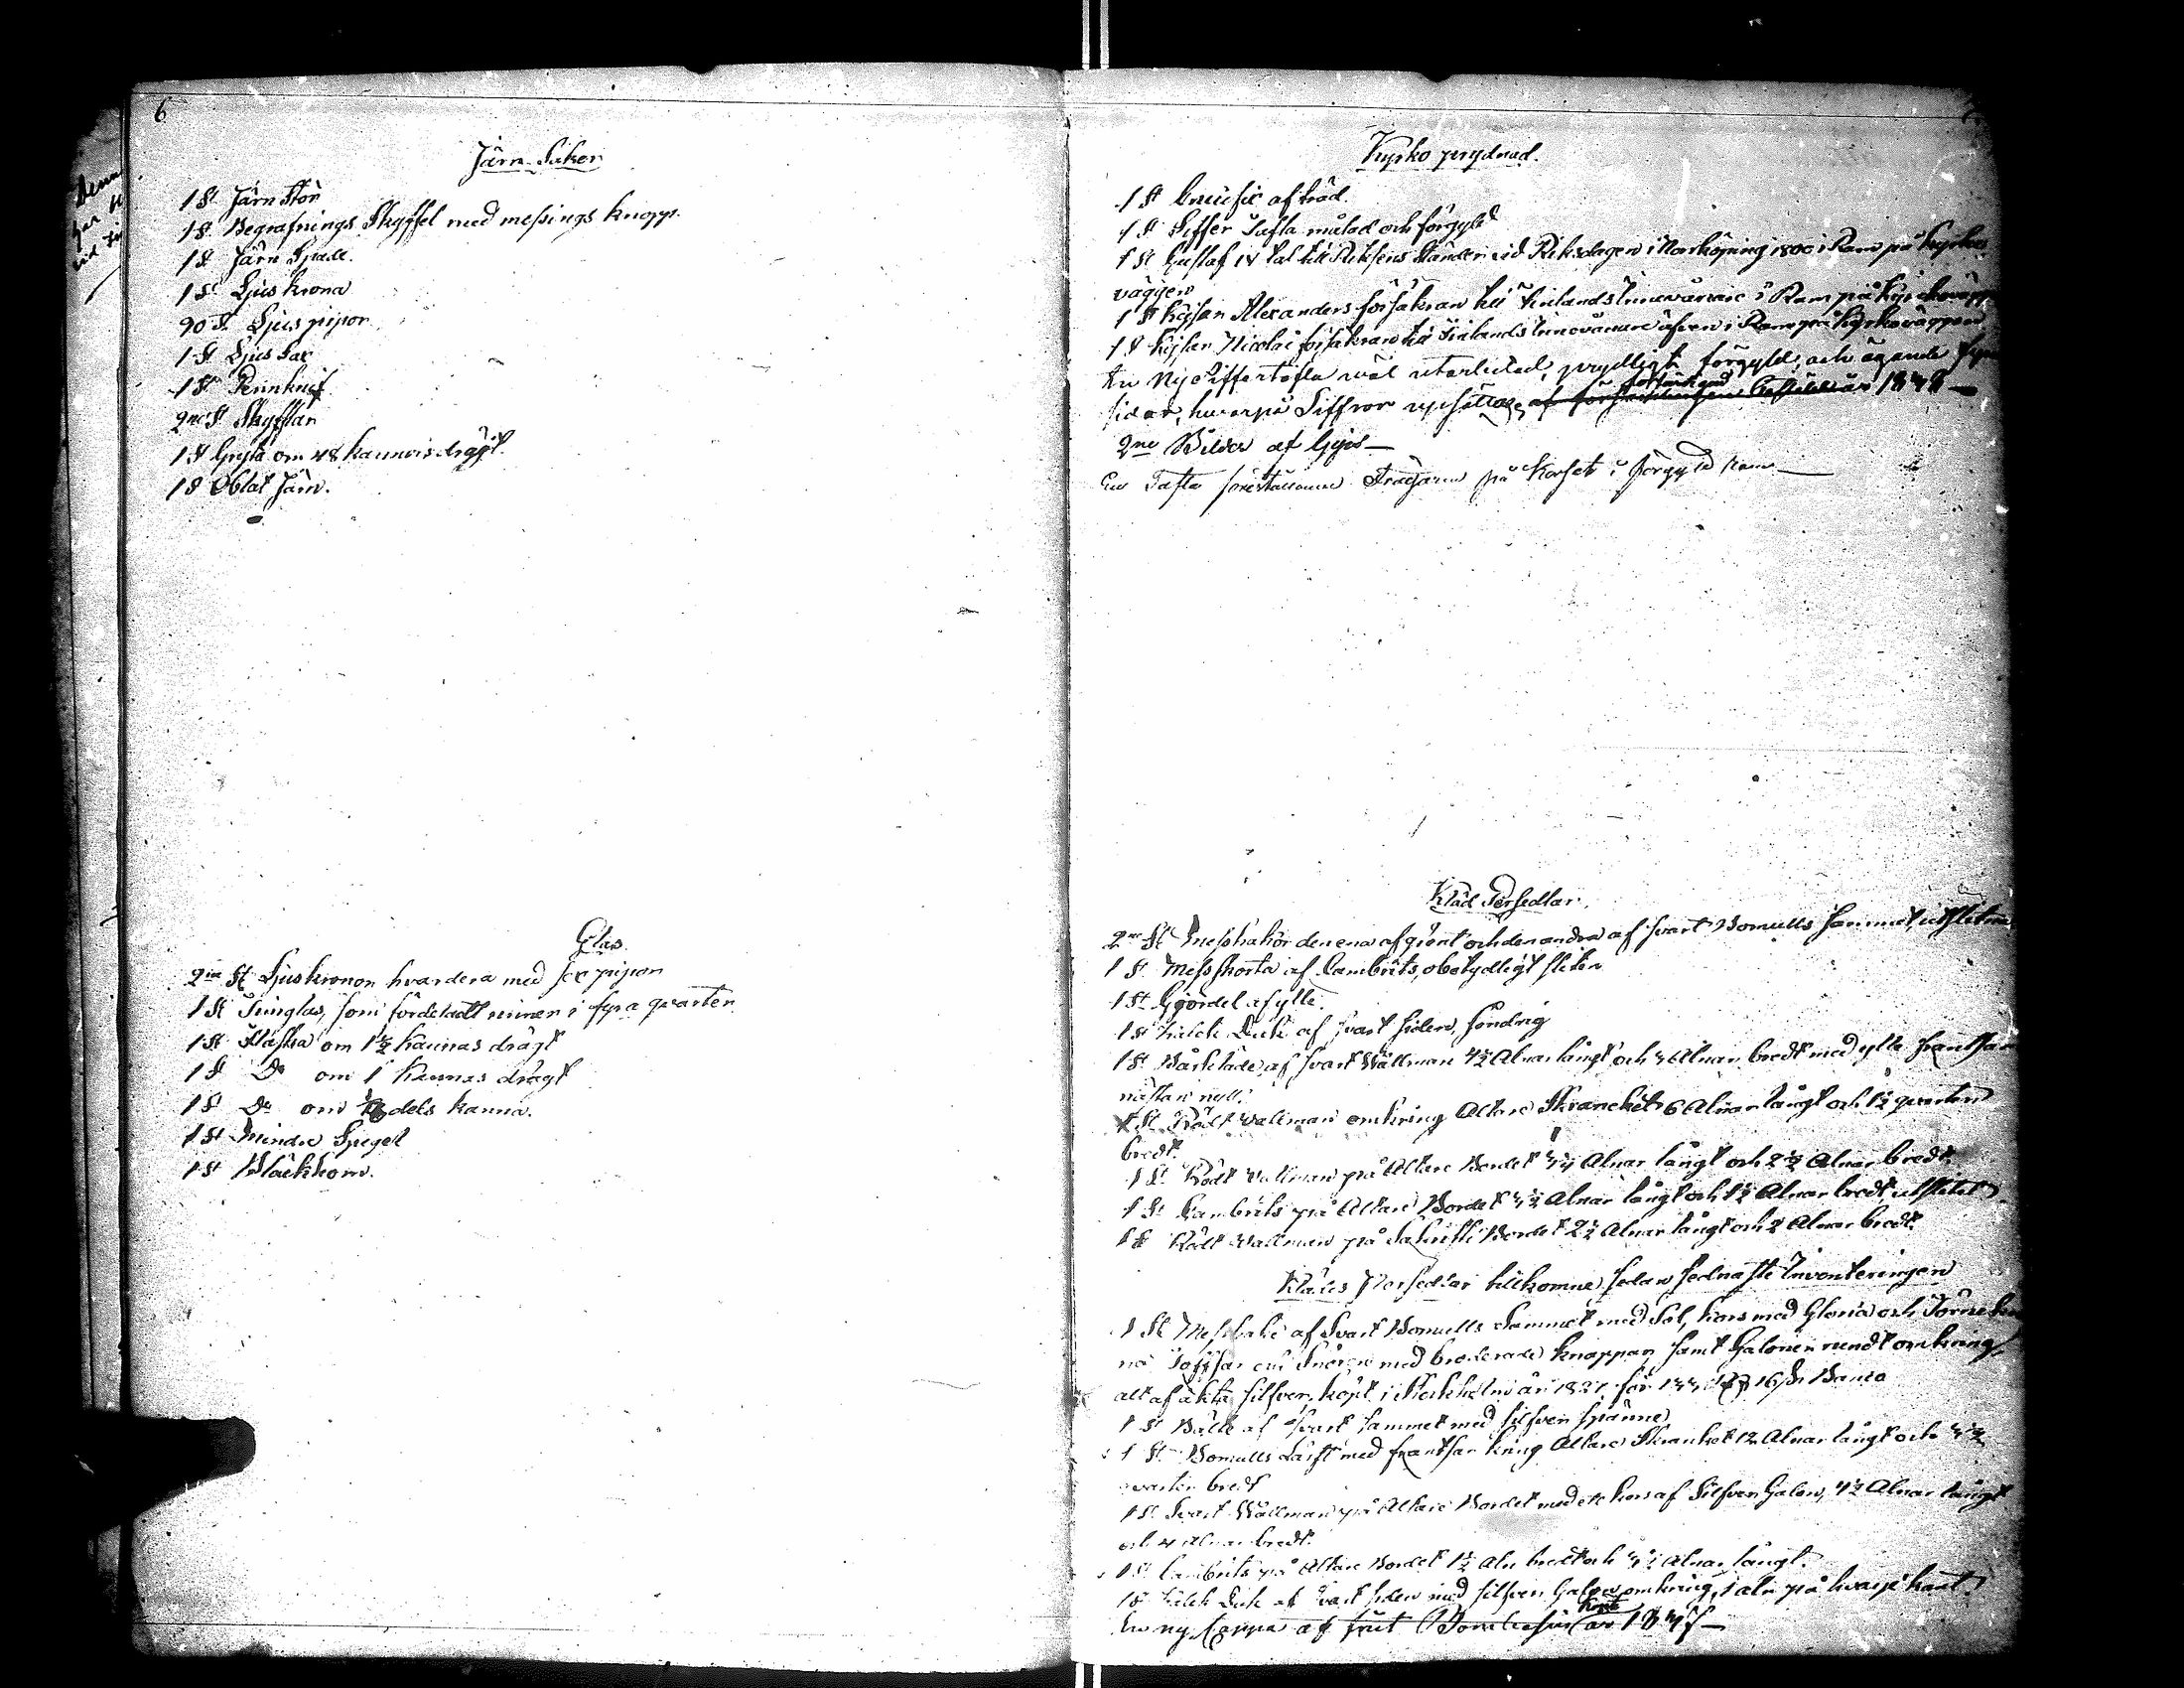 6
Järn Saker
1 St Järn Stör
1 St Begrafnings Skyffel med messings knopp.
1 St Järn Spade.
1 St Ljus krona
90 St Ljus pipor
1 St Ljus Sax
1 St Pennknif
2ne St Skyfflar
1 St Gryta om 48 kannors drägt.
1 St Oblat Järn.
Glas
2ne St Ljuskronor hvardera med sex pipor
1 St Timglas, som fördetadt rinner i fyra qvarter
1 St Flaska om 1½ kannas drägt
1 St Do om 1 kannas drägt
1 St Do om dels kanna.
1 St Mindre Spegel
1 St Bläckhorn.
Kyrko prydnad.
1 St Crucifix af träd.
1 St Siffer Tafla målad och förgyld
1 St Gustaf IV tal till Riksens Ständer vid Riksdagen i Norrköping 1800 i Ram på kyrko
väggen
1 St Kejsar Alexanders försäkran till Finlands Innevånare i Ram på kyrkoväggen
1 St Kejsar Nicolai försäkran till Finlands Innevånare äfven i Ram på kyrkoväggen
En Ny Siffertafla wäl utarbetad, prydligt förgyld, och ägande fyra
sidor, hvarpå Siffror upsättas, af församlingen 1848 —
2ne Bilder af Gips —
En Tafla föreställande Frälsaren på Korset i förgyld ram —
Kläd Persedlar.
2ne St Messhakor den ena af grönt och den andra af svart Bomulls Sammet, utslitna
1 St Messskorta af Cambrits, obetydligt sliten
1 St Gjördel af ylle.
1 St Kalck Duk af svart siden, söndrig
1 St Bårkläde af svart Wallman 4½ Alnar långt och 4 Alnar bredt med ylle frantsar
nästan nytt.
1 St Rödt Wallman omkring Altare Skranket 6 Alnar långt och 1½ qvarter
bredt.
1 St Rödt Wallman på Altare Bordet Alnar långt och 2½ Alnar bredt.
1 St Cambrits på Altare Bordet 4½ Alnar långt och 1½ Alnar bredt, utslitet.
1 St Rödt Wallman på Sakristi Bordet 2½ Alnar långt och 2 Alnar bredt.
Klädes Persedlar tillkomne sedan sednaste Inventeringen
1 St Messhake af Svart Bomulls Sammet med Sol, kors med Gloria och Törnekro
na Toffsar och Snören med broderade knappar, samt Galoner rundt omkring,
alt af äkta silfver, köpt i Stockholm år 1827 för 16 sk Banco
1 St Bälte af svart sammet med silfver spänne
1 St Bomulls Lärft med frantsar kring Altare Skranket 12 Alnar långt och 4½
qvarter bredt
1 St Svart Wallman på Altare Bordet med ett kors af Silfver Galon, 4½ Alnar långt
och 4 Alnar bredt.
1 St Cambrits på Altare Bordet 1½ Aln bredt och 4½ Alnar långt.
1 St Kalck Duk af svart siden med silfver Galon omkring, 1 aln på hvarje kant.
En ny Cappa af swart köpt år 1847 —